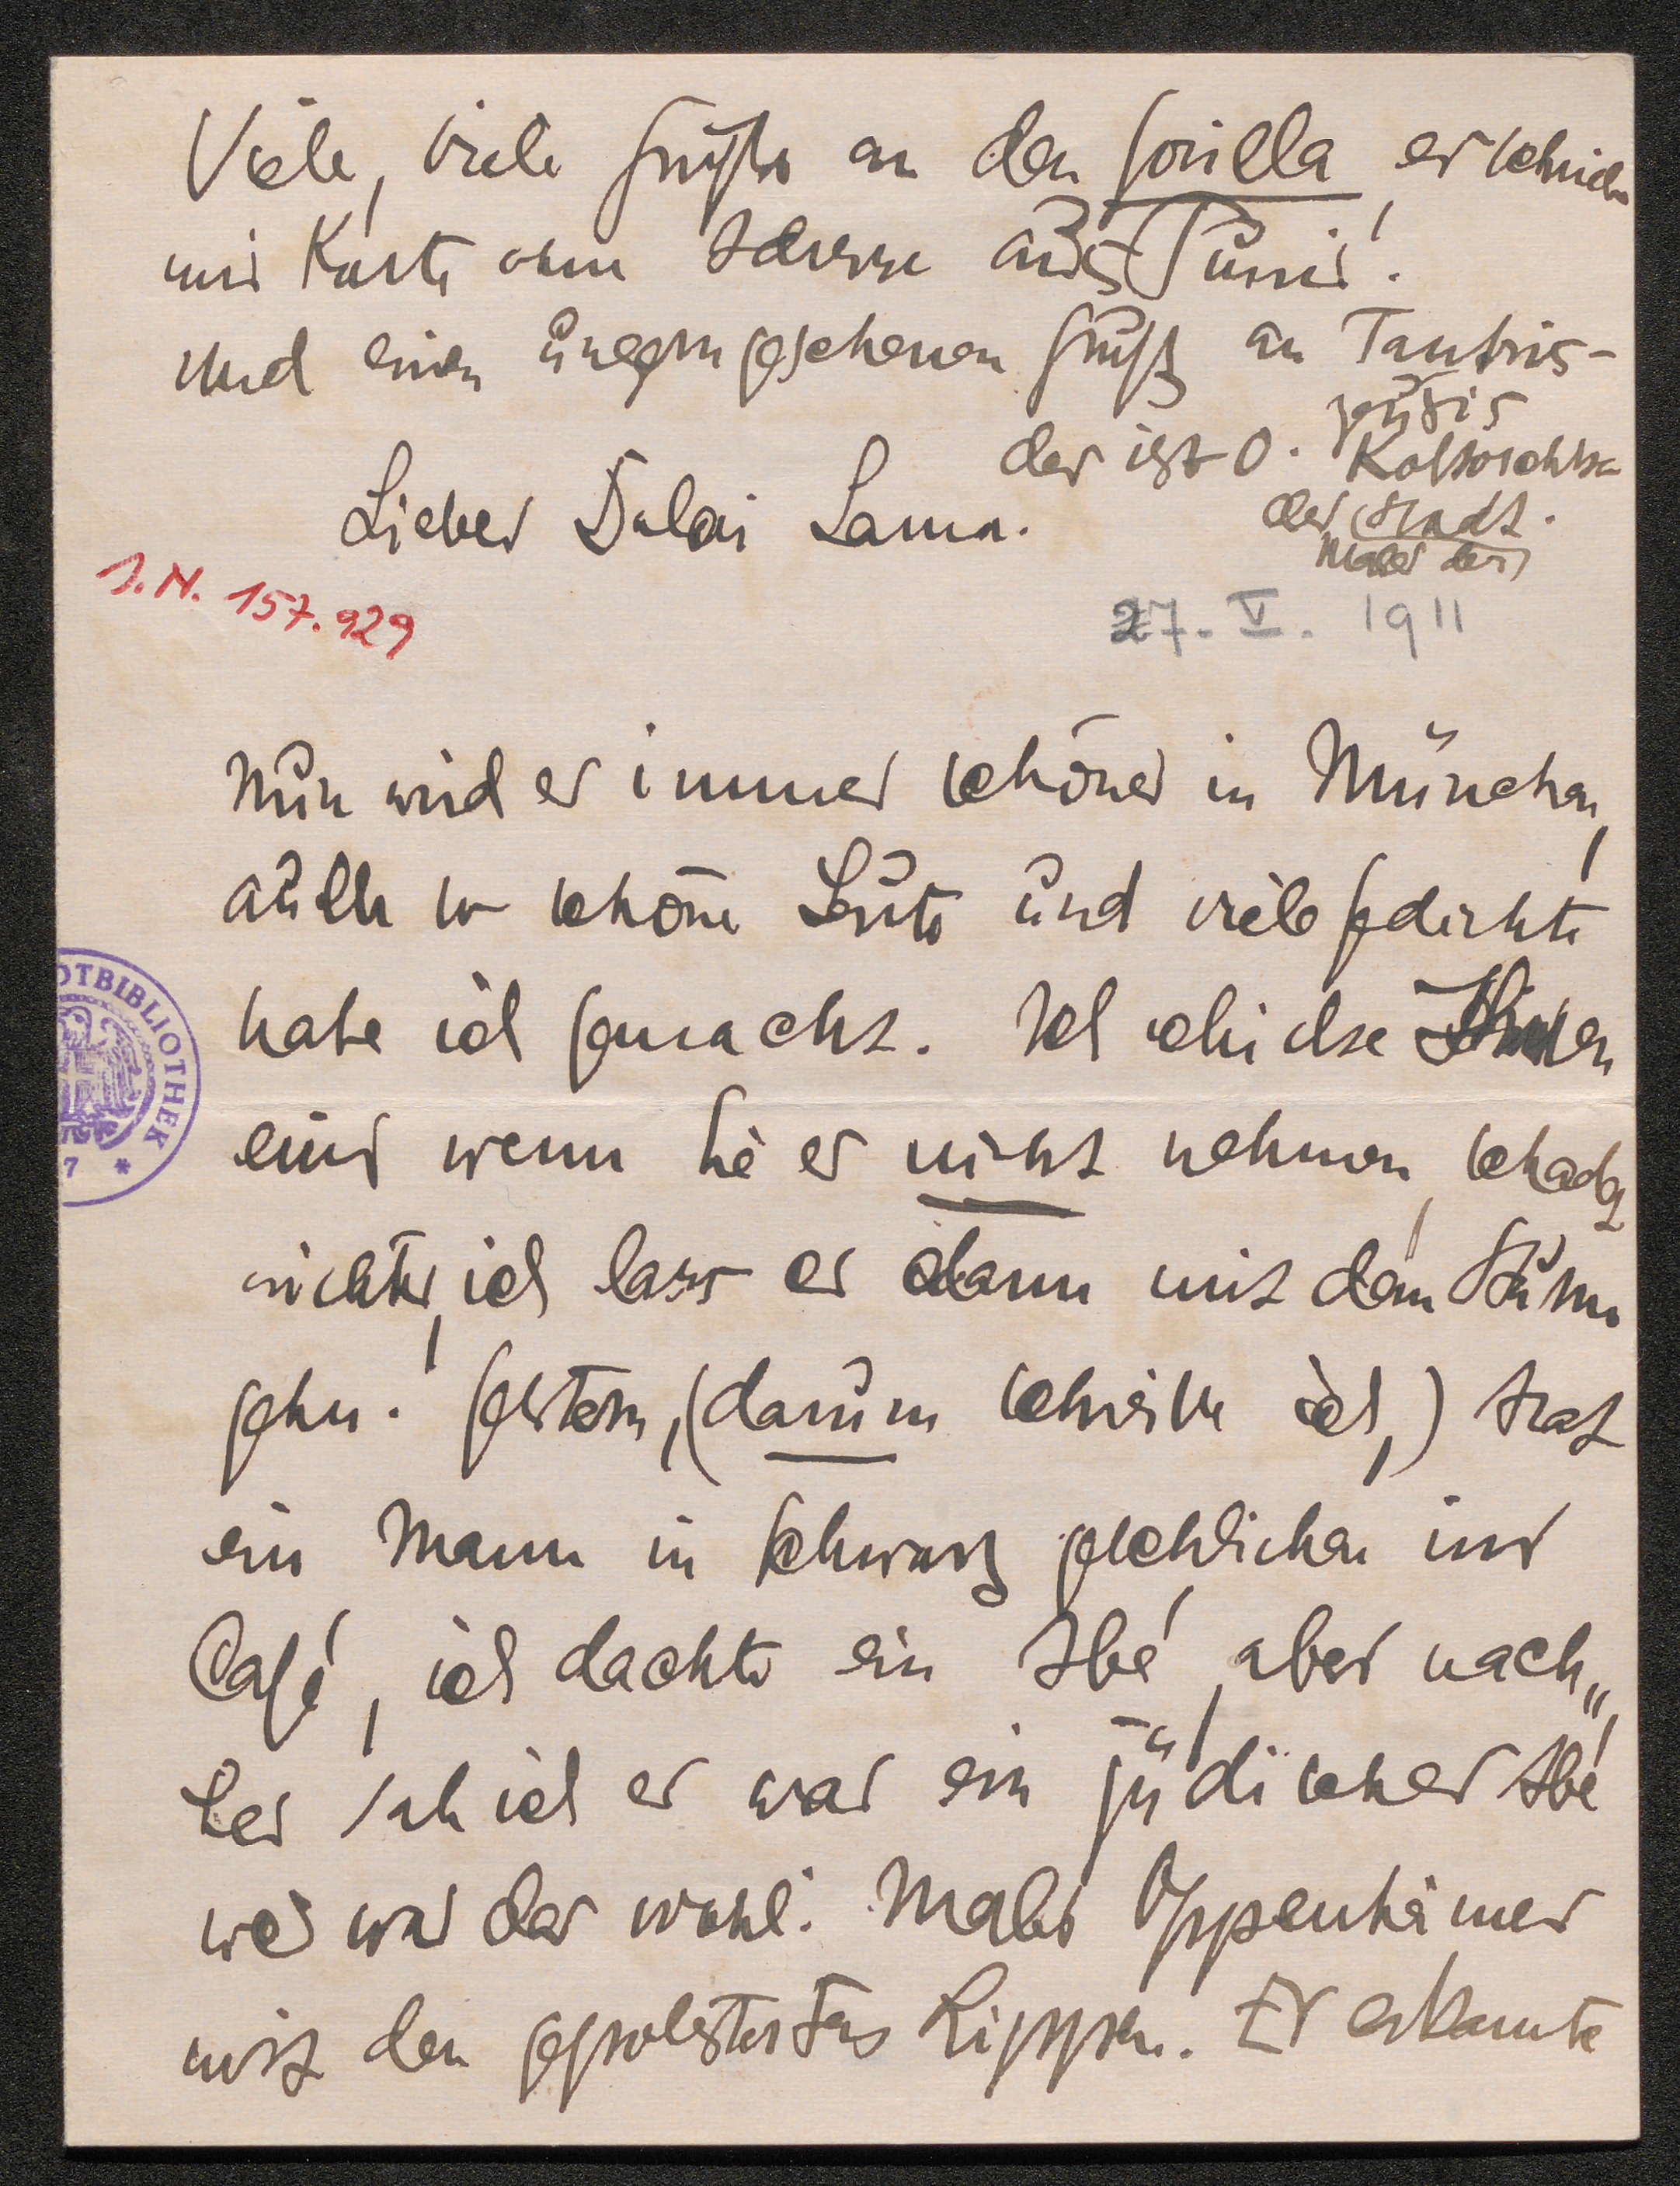 Viele, viele Grüße an den Gorilla, er schrieb
mir Karte ohne Adresse aus Tunis!
Und einen ungern gesehenen Gruß an Tantris-
der ist O. Kokoschka
der Stadt.
Maler der
Lieber Dalai Lama.
J.N. 157.929
27. V. 1911
Nun wird es immer schöner in München,
auch so schöne Leute und viele Gedichte
habe ich gemacht. Ich schicke Ihnen
eins wenn Sie es nicht nehmen, schadet
nichts, ich lass es dann mit dem Sturm
gehn. Gestern, (darum schreibe ich,) trat
ein Mann in schwarz geschlichen ins
Café, ich dachte ein Abé, aber nach„
her sah ich es war ein jüdischer Abé
wer war das wohl: Maler Oppenheimer
mit den gepolsterten Rippen. Er erkannte
OTBIBLIOTHEK
7 *